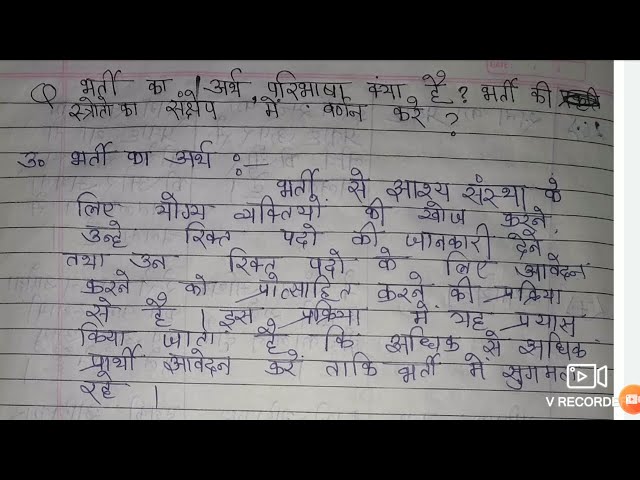 Q भर्ती का अर्थ, परिभाषा क्या है? भर्ती की
स्त्रोतो का संक्षेप में वर्णन करे?
उ० भर्ती का अर्थ :-
भर्ती से आश्य संस्था के
लिए योग्य व्यक्तियों की खोज करने,
उन्हे रिक्त पदो की जानकारी देने
तथा उन रिक्त पदो के लिए आवेदन
करने को प्रोत्साहित करने की प्रक्रिया
से है। इस प्रक्रिया में यह प्रयास
किया जाता है कि अधिक से अधिक
प्रार्थी आवेदन करें ताकि भर्ती में सुगमता
रहे।
V RECORDE